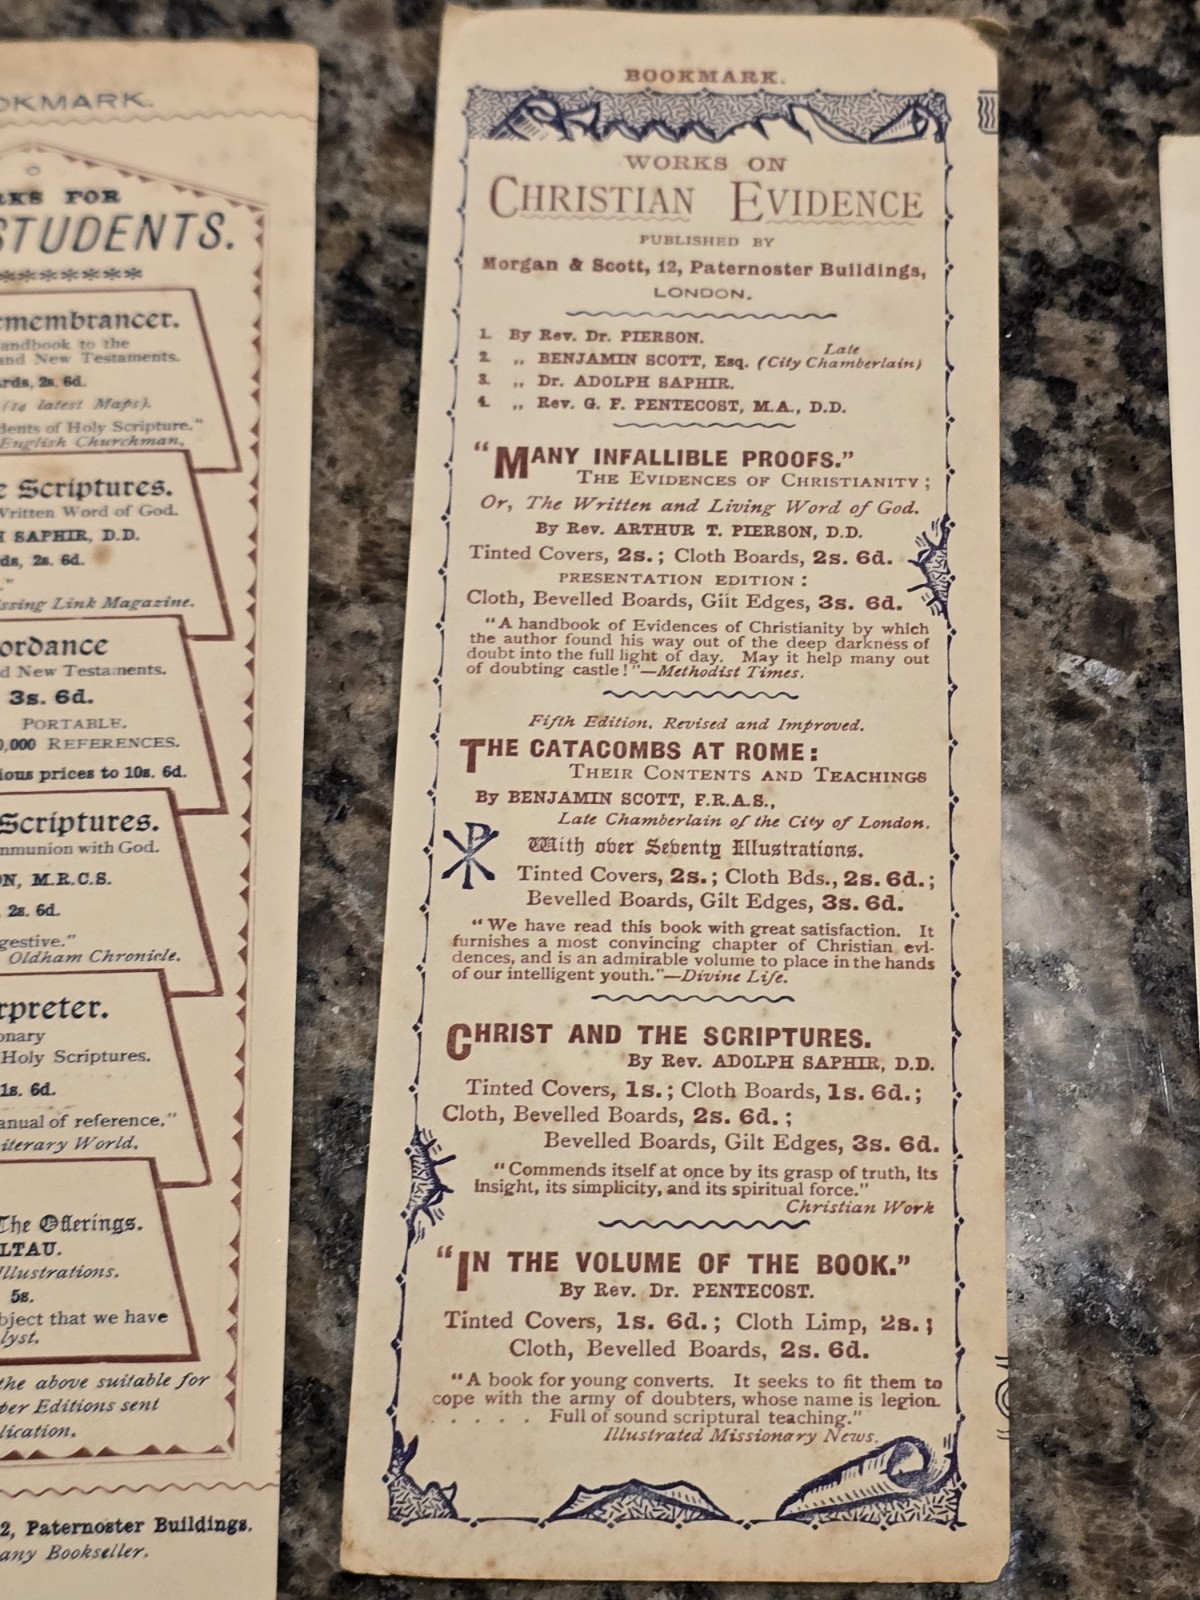 BOOKMARK.
WORKS ON
CHRISTIAN EVIDENCE
PUBLISHED BY
Morgan & Scott, 12, Paternoster Buildings,
LONDON.
1. By Rev. Dr. PIERSON.
2. „ BENJAMIN SCOTT, Esq. (Late City Chamberlain)
3. „ Dr. ADOLPH SAPHIR.
4. „ Rev. G. F. PENTECOST, M.A., D.D.
"MANY INFALLIBLE PROOFS."
THE EVIDENCES OF CHRISTIANITY;
Or, The Written and Living Word of God.
By Rev. ARTHUR T. PIERSON, D.D.
Tinted Covers, 2s.; Cloth Boards, 2s. 6d.
PRESENTATION EDITION:
Cloth, Bevelled Boards, Gilt Edges, 3s. 6d.
"A handbook of Evidences of Christianity by which
the author found his way out of the deep darkness of
doubt into the full light of day. May it help many out
of doubting castle!"—Methodist Times.
Fifth Edition. Revised and Improved.
THE CATACOMBS AT ROME:
THEIR CONTENTS AND TEACHINGS
By BENJAMIN SCOTT, F.R.A.S.,
Late Chamberlain of the City of London.
With over Seventy Illustrations.
Tinted Covers, 2s.; Cloth Bds., 2s. 6d.;
Bevelled Boards, Gilt Edges, 3s. 6d.
"We have read this book with great satisfaction. It
furnishes a most convincing chapter of Christian evi-
dences, and is an admirable volume to place in the hands
of our intelligent youth."—Divine Life.
CHRIST AND THE SCRIPTURES.
By Rev. ADOLPH SAPHIR, D.D.
Tinted Covers, 1s.; Cloth Boards, 1s. 6d.;
Cloth, Bevelled Boards, 2s. 6d.;
Bevelled Boards, Gilt Edges, 3s. 6d.
"Commends itself at once by its grasp of truth, its
insight, its simplicity, and its spiritual force."
Christian Work
"IN THE VOLUME OF THE BOOK."
By Rev. Dr. PENTECOST.
Tinted Covers, 1s. 6d.; Cloth Limp, 2s.;
Cloth, Bevelled Boards, 2s. 6d.
"A book for young converts. It seeks to fit them to
cope with the army of doubters, whose name is legion.
. . . . Full of sound scriptural teaching."
Illustrated Missionary News.
OKMARK.
RKS FOR
STUDENTS.
********
membrancer.
andbook to the
and New Testaments.
rds, 2s. 6d.
(14 latest Maps).
dents of Holy Scripture."
English Churchman.
e Scriptures.
Written Word of God.
H SAPHIR, D.D.
ds, 2s. 6d.
"
issing Link Magazine.
ordance
d New Testaments.
3s. 6d.
PORTABLE.
0,000 REFERENCES.
ious prices to 10s. 6d.
Scriptures.
mmunion with God.
ON, M.R.C.S.
2s. 6d.
gestive."
Oldham Chronicle.
rpreter.
onary
Holy Scriptures.
1s. 6d.
anual of reference."
iterary World.
The Offerings.
LTAU.
Illustrations.
5s.
bject that we have
lyst.
the above suitable for
per Editions sent
lication.
2, Paternoster Buildings.
any Bookseller.